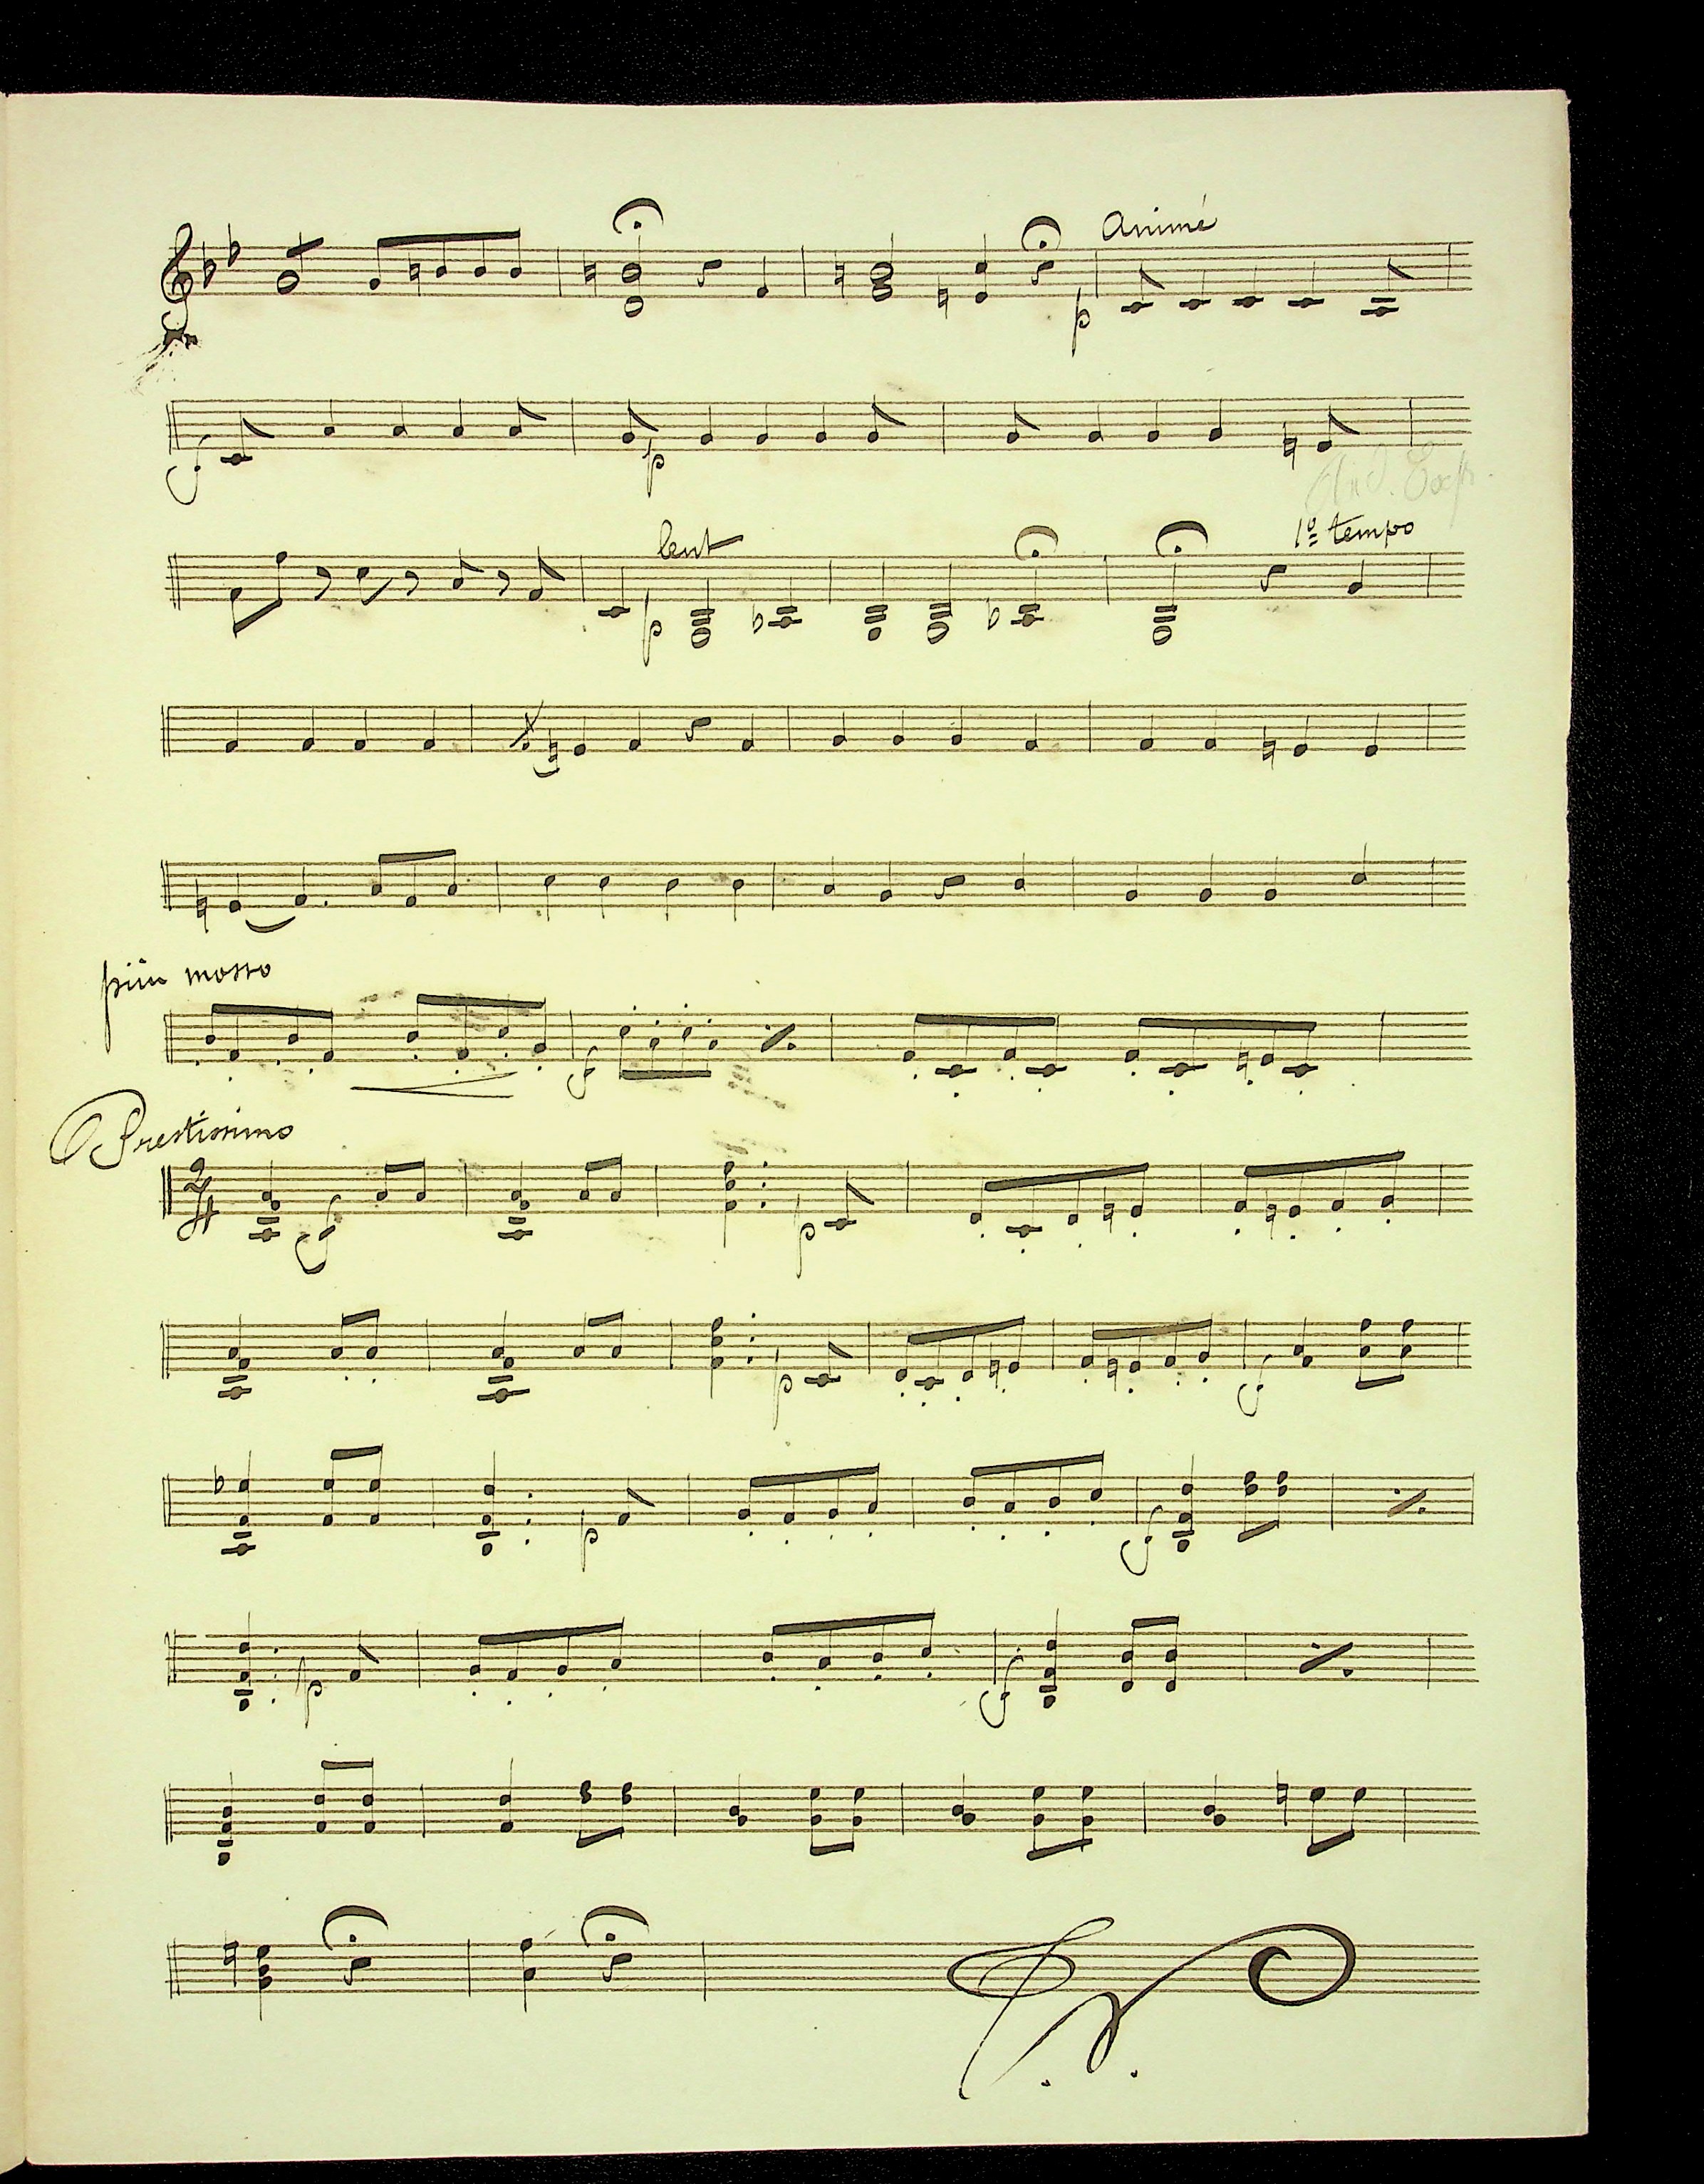 Animé
p
f p
And. Exp.
lent 1º tempo
p
più mosso
f
Prestissimo
2/4 f p
p f
p f
p f